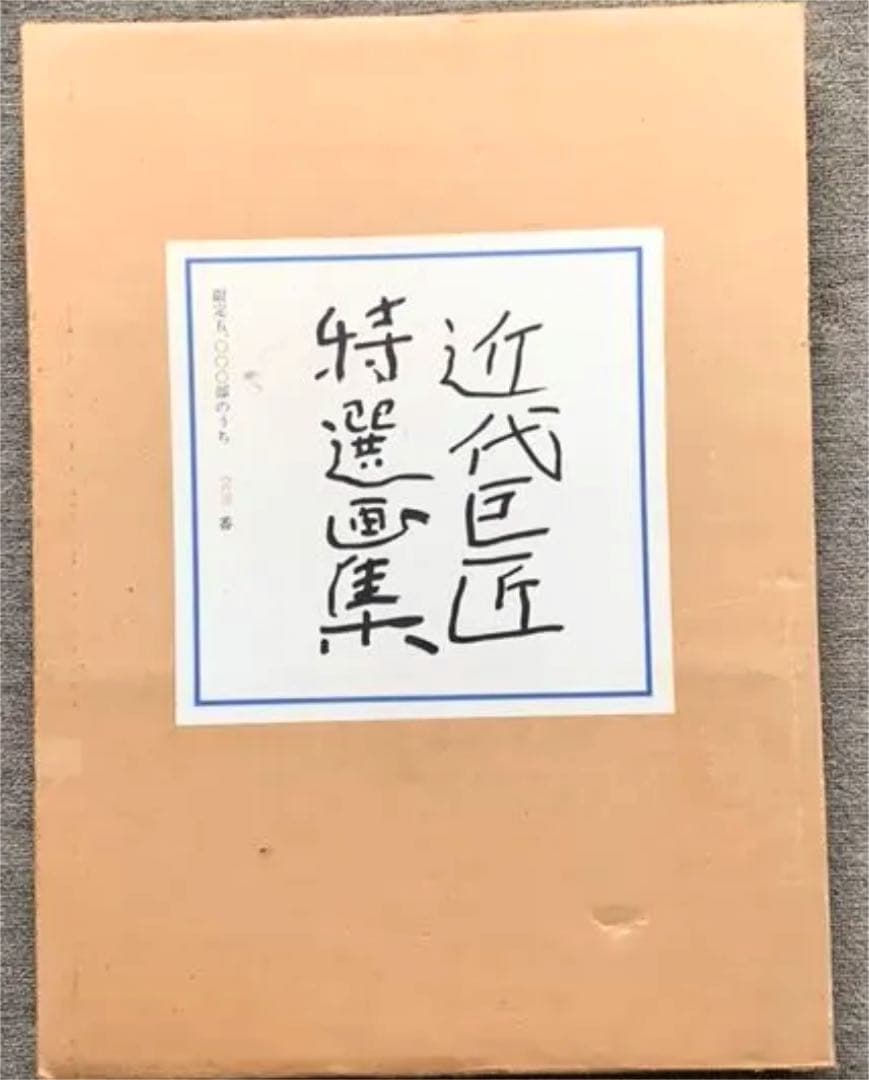 近代巨匠
特選画集
限定五、〇〇〇部のうち 番